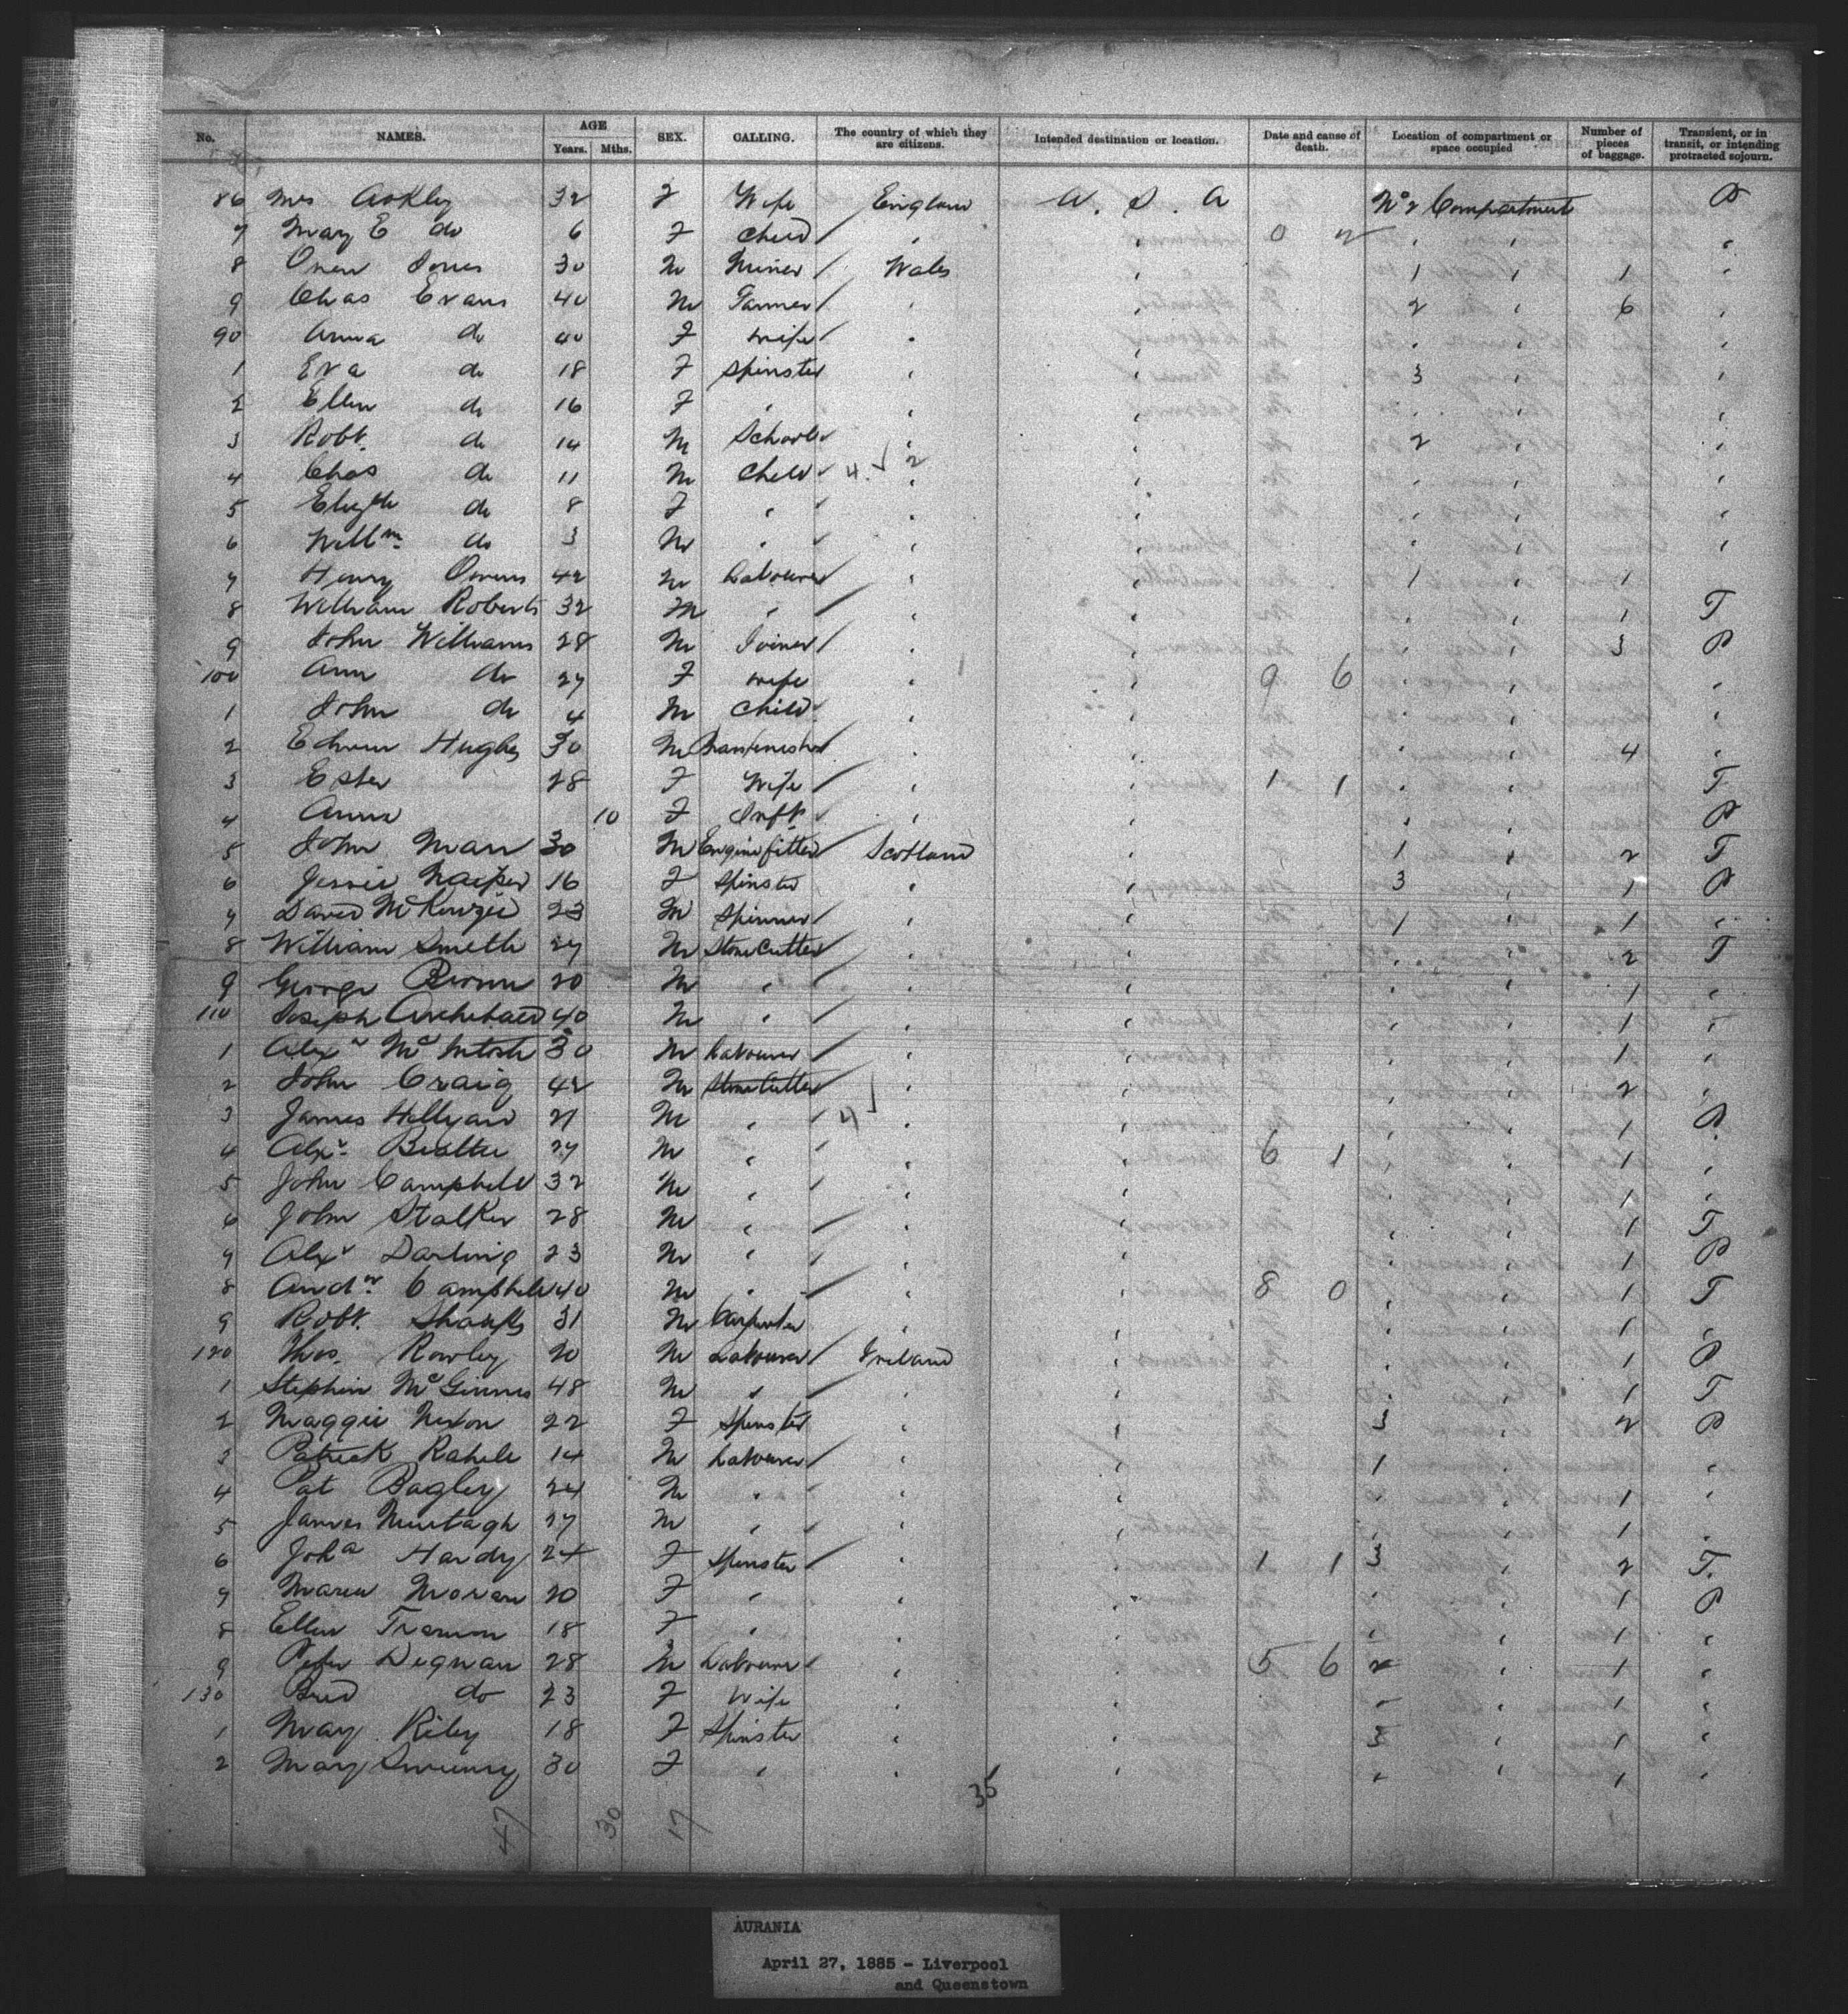 No. NAMES. AGE Years. Mths. SEX. CALLING. The country of which they are citizens. Intended destination or location. Date and cause of death. Location of compartment or space occupied Number of pieces of baggage. Transient, or in transit, or intending protracted sojourn.
86 Mrs Askley 32 F Wife England U. S. A No 2 Compartment P
7 Mary E do 6 F Child " " 0 2 " " "
8 Owen Jones 30 M Miner Wales " 1 " 1 "
9 Chas Evans 40 M Farmer " " 2 " 6 "
90 Anna do 40 F Wife " " " " "
1 Eva do 18 F Spinster " " 3 " "
2 Ellen do 16 F " " " " " "
3 Robt. do 14 M Scholar " " 2 " "
4 Chas do 11 M Child 4 2 " " " " "
5 Elizth do 8 F " " " " " "
6 Willm do 3 M " " " " " "
7 Henry Owens 42 M Labourer " " 1 " 1 "
8 William Roberts 32 M " " " " " 1 T
9 John Williams 28 M Joiner " " " " 3 P
100 Ann do 27 F Wife " " 9 6 " " "
1 John do 4 M Child " " " " "
2 Edwin Hughes 30 M " " " " 4 "
3 Ester 28 F Wife " " 1 1 " " T
4 Anna 10 F Inft " " " " P
5 John Man 30 M Engine fitter Scotland " 1 " 2 T
6 Jessie Napier 16 F Spinster " " 3 " 1 P
7 David McKenzie 23 M Spinner " " 1 " 1 "
8 William Smith 27 M Stone Cutter " " " " 2 T
9 George Brown 20 M " " " " " 1 "
110 Joseph Archibald 40 M " " " " " 1 "
1 Alexr McIntosh 30 M Labourer " " " " 1 "
2 John Craig 42 M Stone Cutter " " " " 2 "
3 James Hillyard 21 M " 4 " " " " 1 P
4 Alexr Beattie 27 M " " " 6 1 " " 1 "
5 John Campbell 32 M " " " " " 1 "
6 John Stalker 28 M " " " " " 1 T
7 Alexr Darling 23 M " " " " " 1 P
8 Andw Campbell 40 M " " " 8 0 " " 1 T
9 Robt. Sharp 31 M Carpenter " " " " 1 "
120 Thos. Rowley 20 M Labourer Ireland " " " 1 P
1 Stephen McGinnis 48 M " " " " " 1 T
2 Maggie Nixon 22 F Spinster " " 3 " 2 P
3 Patrick 14 M Labourer " " 1 " "
4 Pat Bagley 24 M " " " " " 1 "
5 James Murtagh 27 M " " " " " 1 "
6 Joha Hardy 24 F Spinster " " 1 1 3 " 2 T.
7 Maria Moran 20 F " " " " " 1 P
8 Ellen 18 F " " " " " 1 "
9 Peter Degnan 28 M Labourer " " 5 6 2 " 1 "
130 Brid do 23 F Wife " " " " 1 "
1 Mary Riley 18 F Spinster " " 3 " 1 "
2 Mary Sweeney 30 F " " " " " 1 "
47 30 17 35
AURANIA
April 27, 1885 - Liverpool
and Queenstown